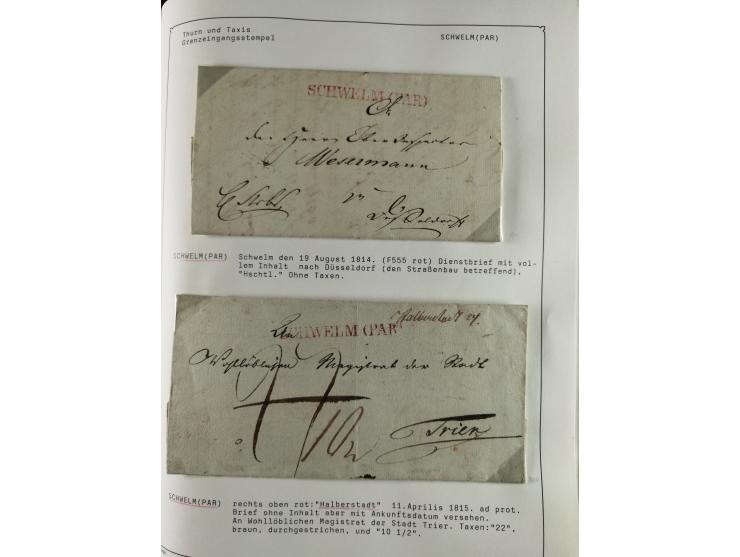 Thurn und Taxis
Grenzeingangsstempel
SCHWELM(PAR)
SCHWELM (PAR)
An
den Herrn Ober
Wesermann
zu
Düsseldorf
SCHWELM(PAR)
Schwelm den 19 August 1814. (F555 rot) Dienstbrief mit vol-
lem Inhalt nach Düsseldorf (den Straßenbau betreffend).
"Hschtl." Ohne Taxen.
Halberstadt
SCHWELM (PAR
An
Wohllöblichen Magistrat der Stadt
Trier
SCHWELM(PAR)
rechts oben rot:"Halberstadt" 11.Aprilis 1815. ad prot.
Brief ohne Inhalt aber mit Ankunftsdatum versehen.
An Wohllöblichen Magistrat der Stadt Trier. Taxen:"22",
braun, durchgestrichen, und "10 1/2".